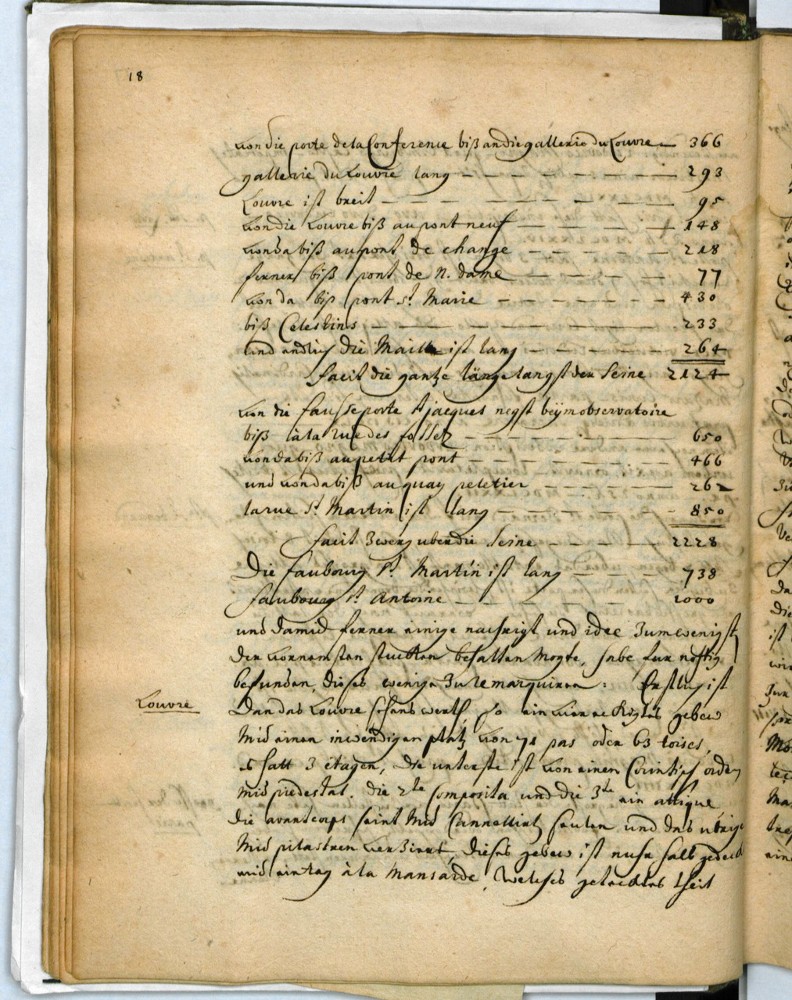 18
von die porte de la Conferenie biß an die gallerie du Louvre — 366
gallerie du Louvre lang — — — — — 293
Louvre ist breit — — — — — 95
von die Louvre biß au pont neuf — — — — 148
von da biß au pont de change — — — — 218
ferner biß pont de N. dame — — — — 77
von da biß pont st Marie — — — — 430
biß Celestins — — — — — 233
und endlich die Maille ist lang — — — — 264
facit die gantze länge langst der Seine 2124
von die fausse porte St jacques negst beÿm observatoire
biß à la rue des fossez — — — — 650
von da biß au petit pont — — — — 466
und von da biß au quay peletier — — — 262
la rue St Martin ist lang — — — — 850
facit zwerg uber die Seine — — — 2228
Die faubourg St. Martin ist lang — — — 738
faubourg st Antoine — — — — 1000
und damid ferner einige nachrigt und idee zum wenigst
der vornemsten stucken behalten mogte, habe fur nohtig
befunden, dieses wenige zu remarquiren: Erstlig ist
Louvre
dan das Louvre sehens werth, so ein vier eckigtes gebew
mid einen inwendigen platz von 71 pas oder 63 toises,
es hatt 3 etagen, die unterste ist von einen Corintisch orden
mid piedestal. die 2te Composita und die 3te ein attique
die avantcorps seint mid Cannellirte seulen und das ubrige
mid pilastren verzirret, dieses gebew ist nuhr halb gedeckt
mid ein tag à la mansarde, welches gedecktes theil